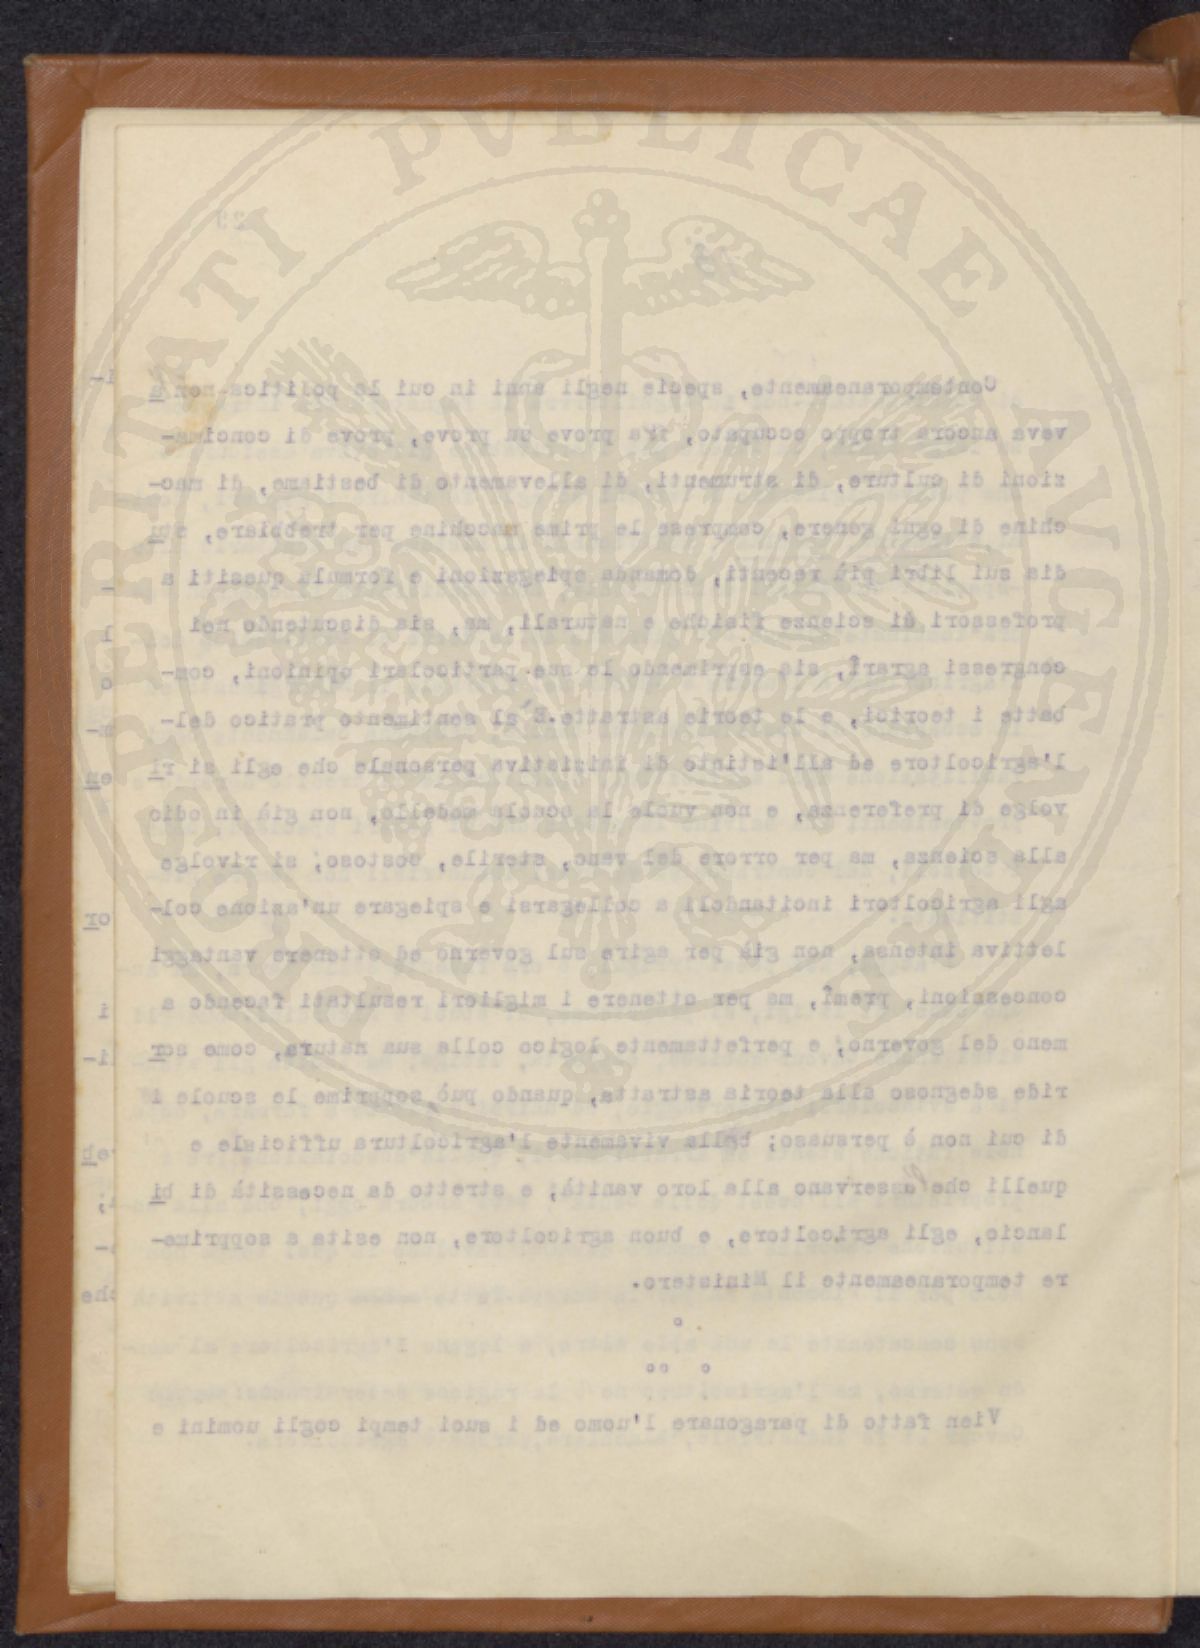 29
Contemporaneamente, specie negli anni in cui la politica non a
veva ancora troppo occupato, fra prove su prove, prove di concima-
zioni di culture, di strumenti, di allevamento di bestiame, di mac-
chine di ogni genere, comprese le prime macchine per trebbiare, stu
dia sui libri più recenti, domanda spiegazioni e formula quesiti a
professori di scienze fisiche e naturali, ma, sia discutendo nei
congressi agrarî, sia esprimendo le sue particolari opinioni, com-
batte i teorici, e le teorie astratte. E' al sentimento pratico del-
l'agricoltore ed all'istinto di iniziativa personale che egli si ri
volge di preferenza, e non vuole la scuola modello, non già in odio
alla scienza, ma per orrore del vano, sterile, costoso; si rivolge
agli agricoltori incitandoli a collegarsi e spiegare un'azione col-
lettiva intensa, non già per agire sul governo ed ottenere vantaggi
concessioni, premî, ma per ottenere i migliori resultati facendo a
meno del governo; e perfettamente logico colla sua natura, come sor
ride sdegnoso alla teoria astratta, quando può sopprime le scuole i
di cui non è persuaso; bolla vivamente l'agricoltura ufficiale e
quelli che asservano alla loro vanità; e stretto da necessità di bi
lancio, egli agricoltore, e buon agricoltore, non esita a sopprime-
re temporaneamente il Ministero.
°
° °°
Vien fatto di paragonare l'uomo ed i suoi tempi cogli uomini e
PROSPERITATI PVBLICAE AVGENDAE